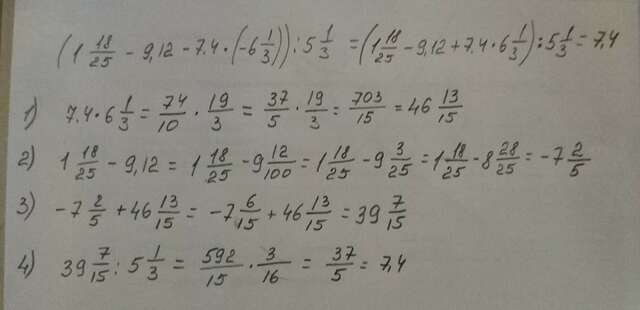 (1 18/25 - 9,12 - 7.4 · (-6 1/3)) : 5 1/3 = (1 18/25 - 9,12 + 7.4 · 6 1/3) : 5 1/3 = 7,4
1) 7.4 · 6 1/3 = 74/10 · 19/3 = 37/5 · 19/3 = 703/15 = 46 13/15
2) 1 18/25 - 9,12 = 1 18/25 - 9 12/100 = 1 18/25 - 9 3/25 = 1 18/25 - 8 28/25 = -7 2/5
3) -7 2/5 + 46 13/15 = -7 6/15 + 46 13/15 = 39 7/15
4) 39 7/15 : 5 1/3 = 592/15 · 3/16 = 37/5 = 7,4